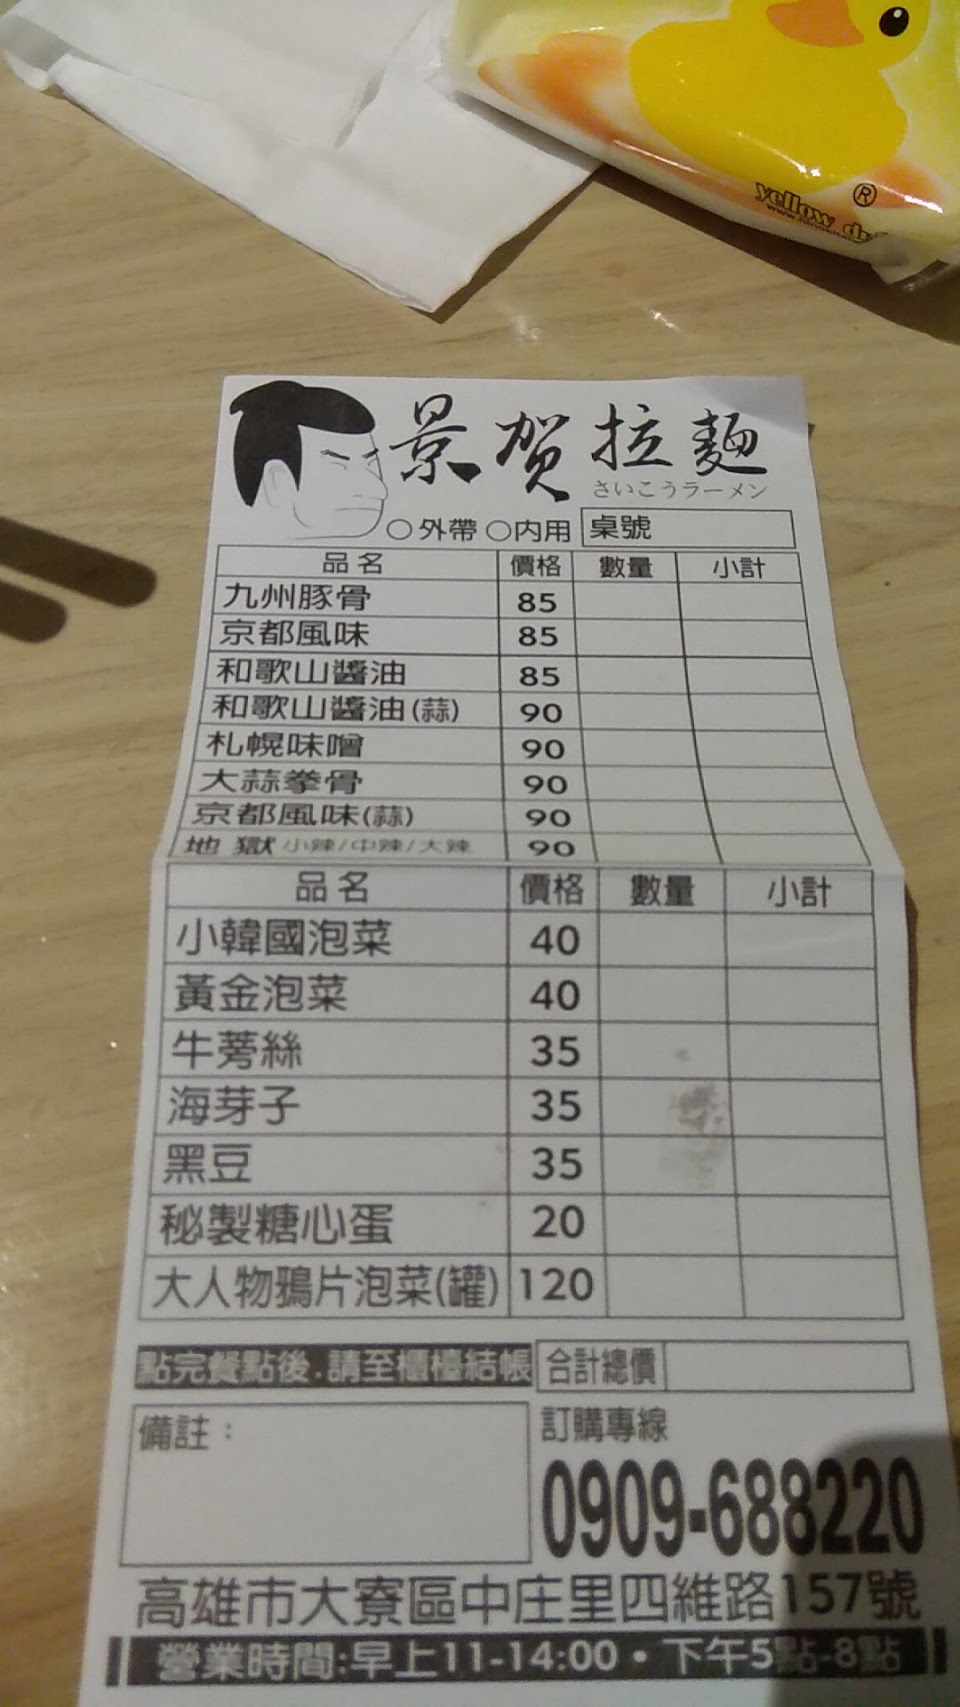 yellow
®
景賀拉麵
さいこうラーメン
○外帶 ○内用 桌號
品名 價格 數量 小計
九州豚骨 85
京都風味 85
和歌山醬油 85
和歌山醬油(蒜) 90
札幌味噌 90
大蒜拳骨 90
京都風味(蒜) 90
地獄 小辣/中辣/大辣 90
品名 價格 數量 小計
小韓國泡菜 40
黃金泡菜 40
牛蒡絲 35
海芽子 35
黑豆 35
秘製糖心蛋 20
大人物鴉片泡菜(罐) 120
點完餐點後.請至櫃檯結帳 合計總價
備註：
訂購專線
0909-688220
高雄市大寮區中庄里四維路157號
營業時間:早上11-14:00•下午5點-8點